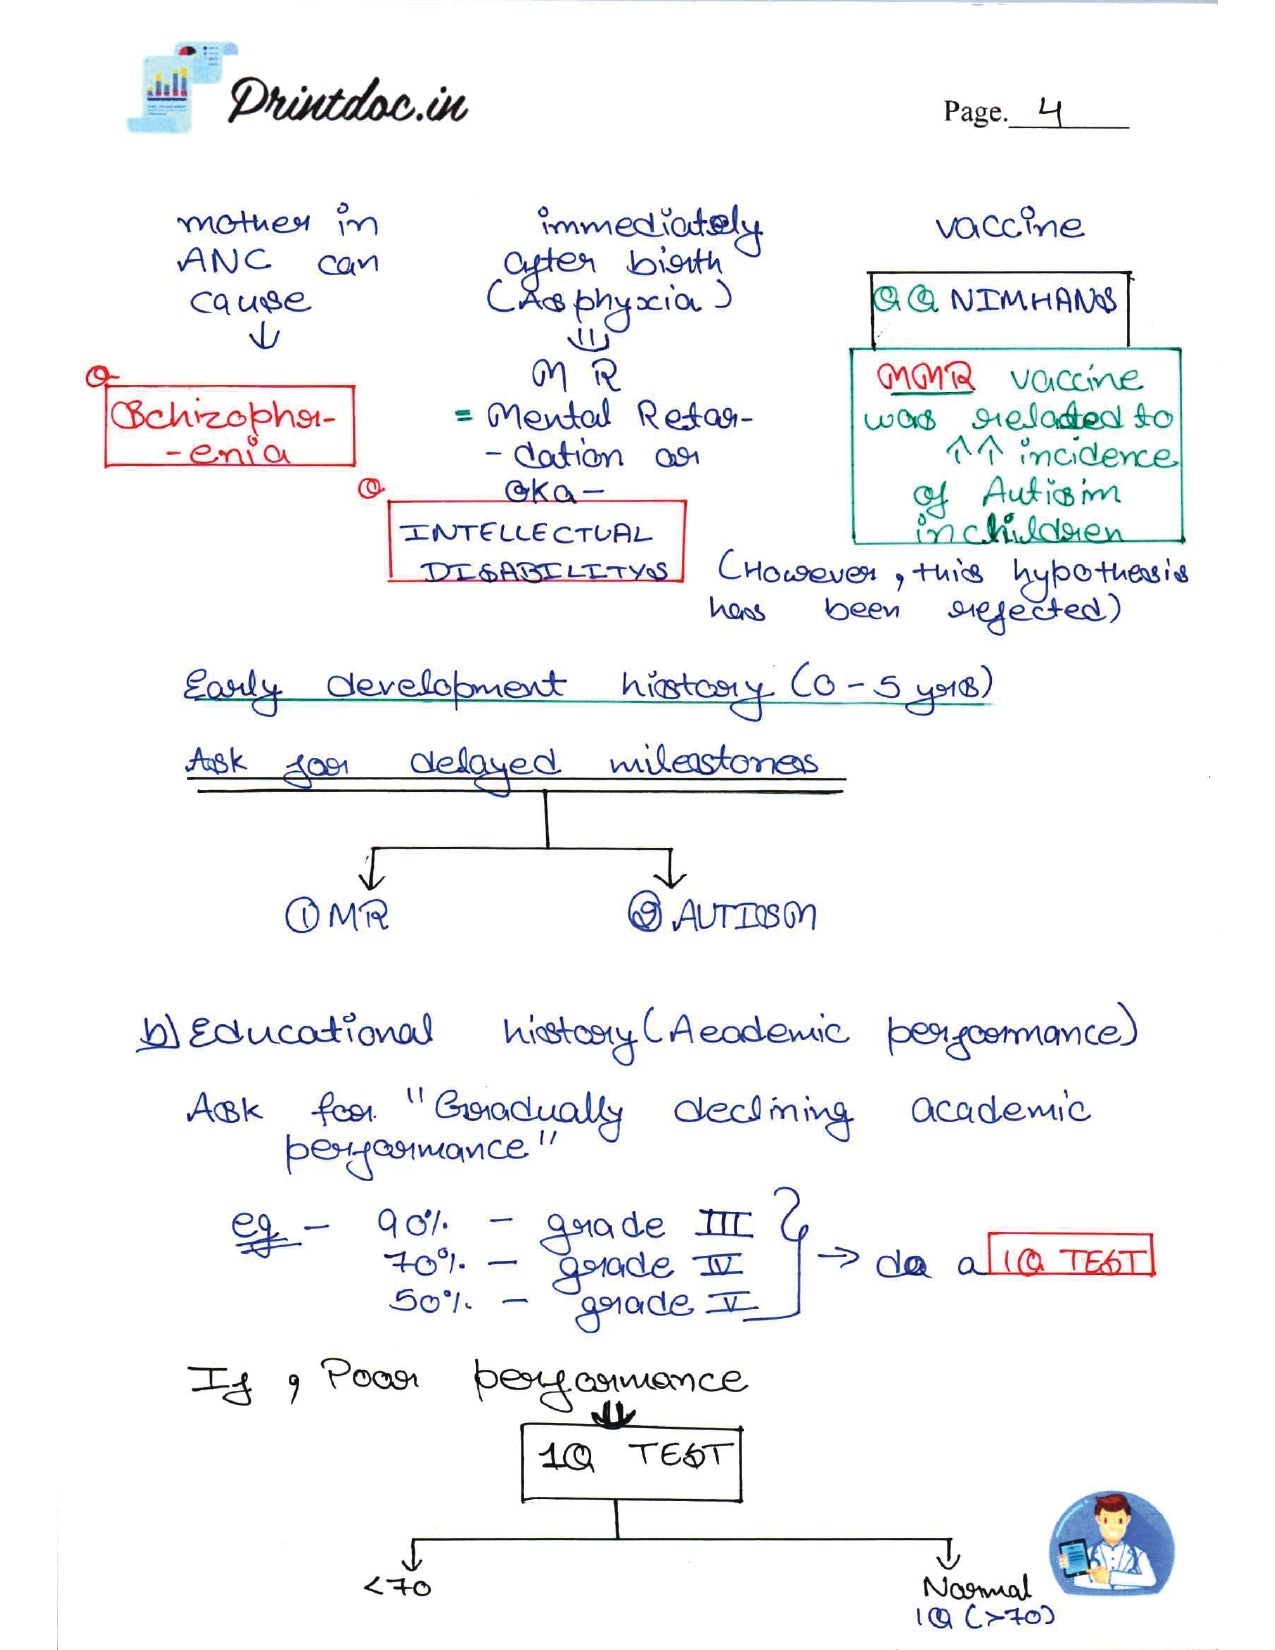 Printdoc.in
Page. 4
mother in
ANC can
cause
Schizophr-
-enia
immediately
after birth
(Asphyxia)
MR
= Mental Retar-
-dation or
aka-
INTELLECTUAL
DISABILITYS
vaccine
Q Q NIMHANS
MMR vaccine
was related to
↑↑ incidence
of Autism
in children
(However, this hypothesis
has been rejected)
Early development history (0-5 yrs)
Ask for delayed milestones
① MR
② AUTISM
b) Educational history (Academic performance)
Ask for "Gradually declining academic
performance"
eg - 90% - grade III
70% - grade IV
50% - grade V
→ do a IQ TEST
If, Poor performance
IQ TEST
<70
Normal
IQ (>70)